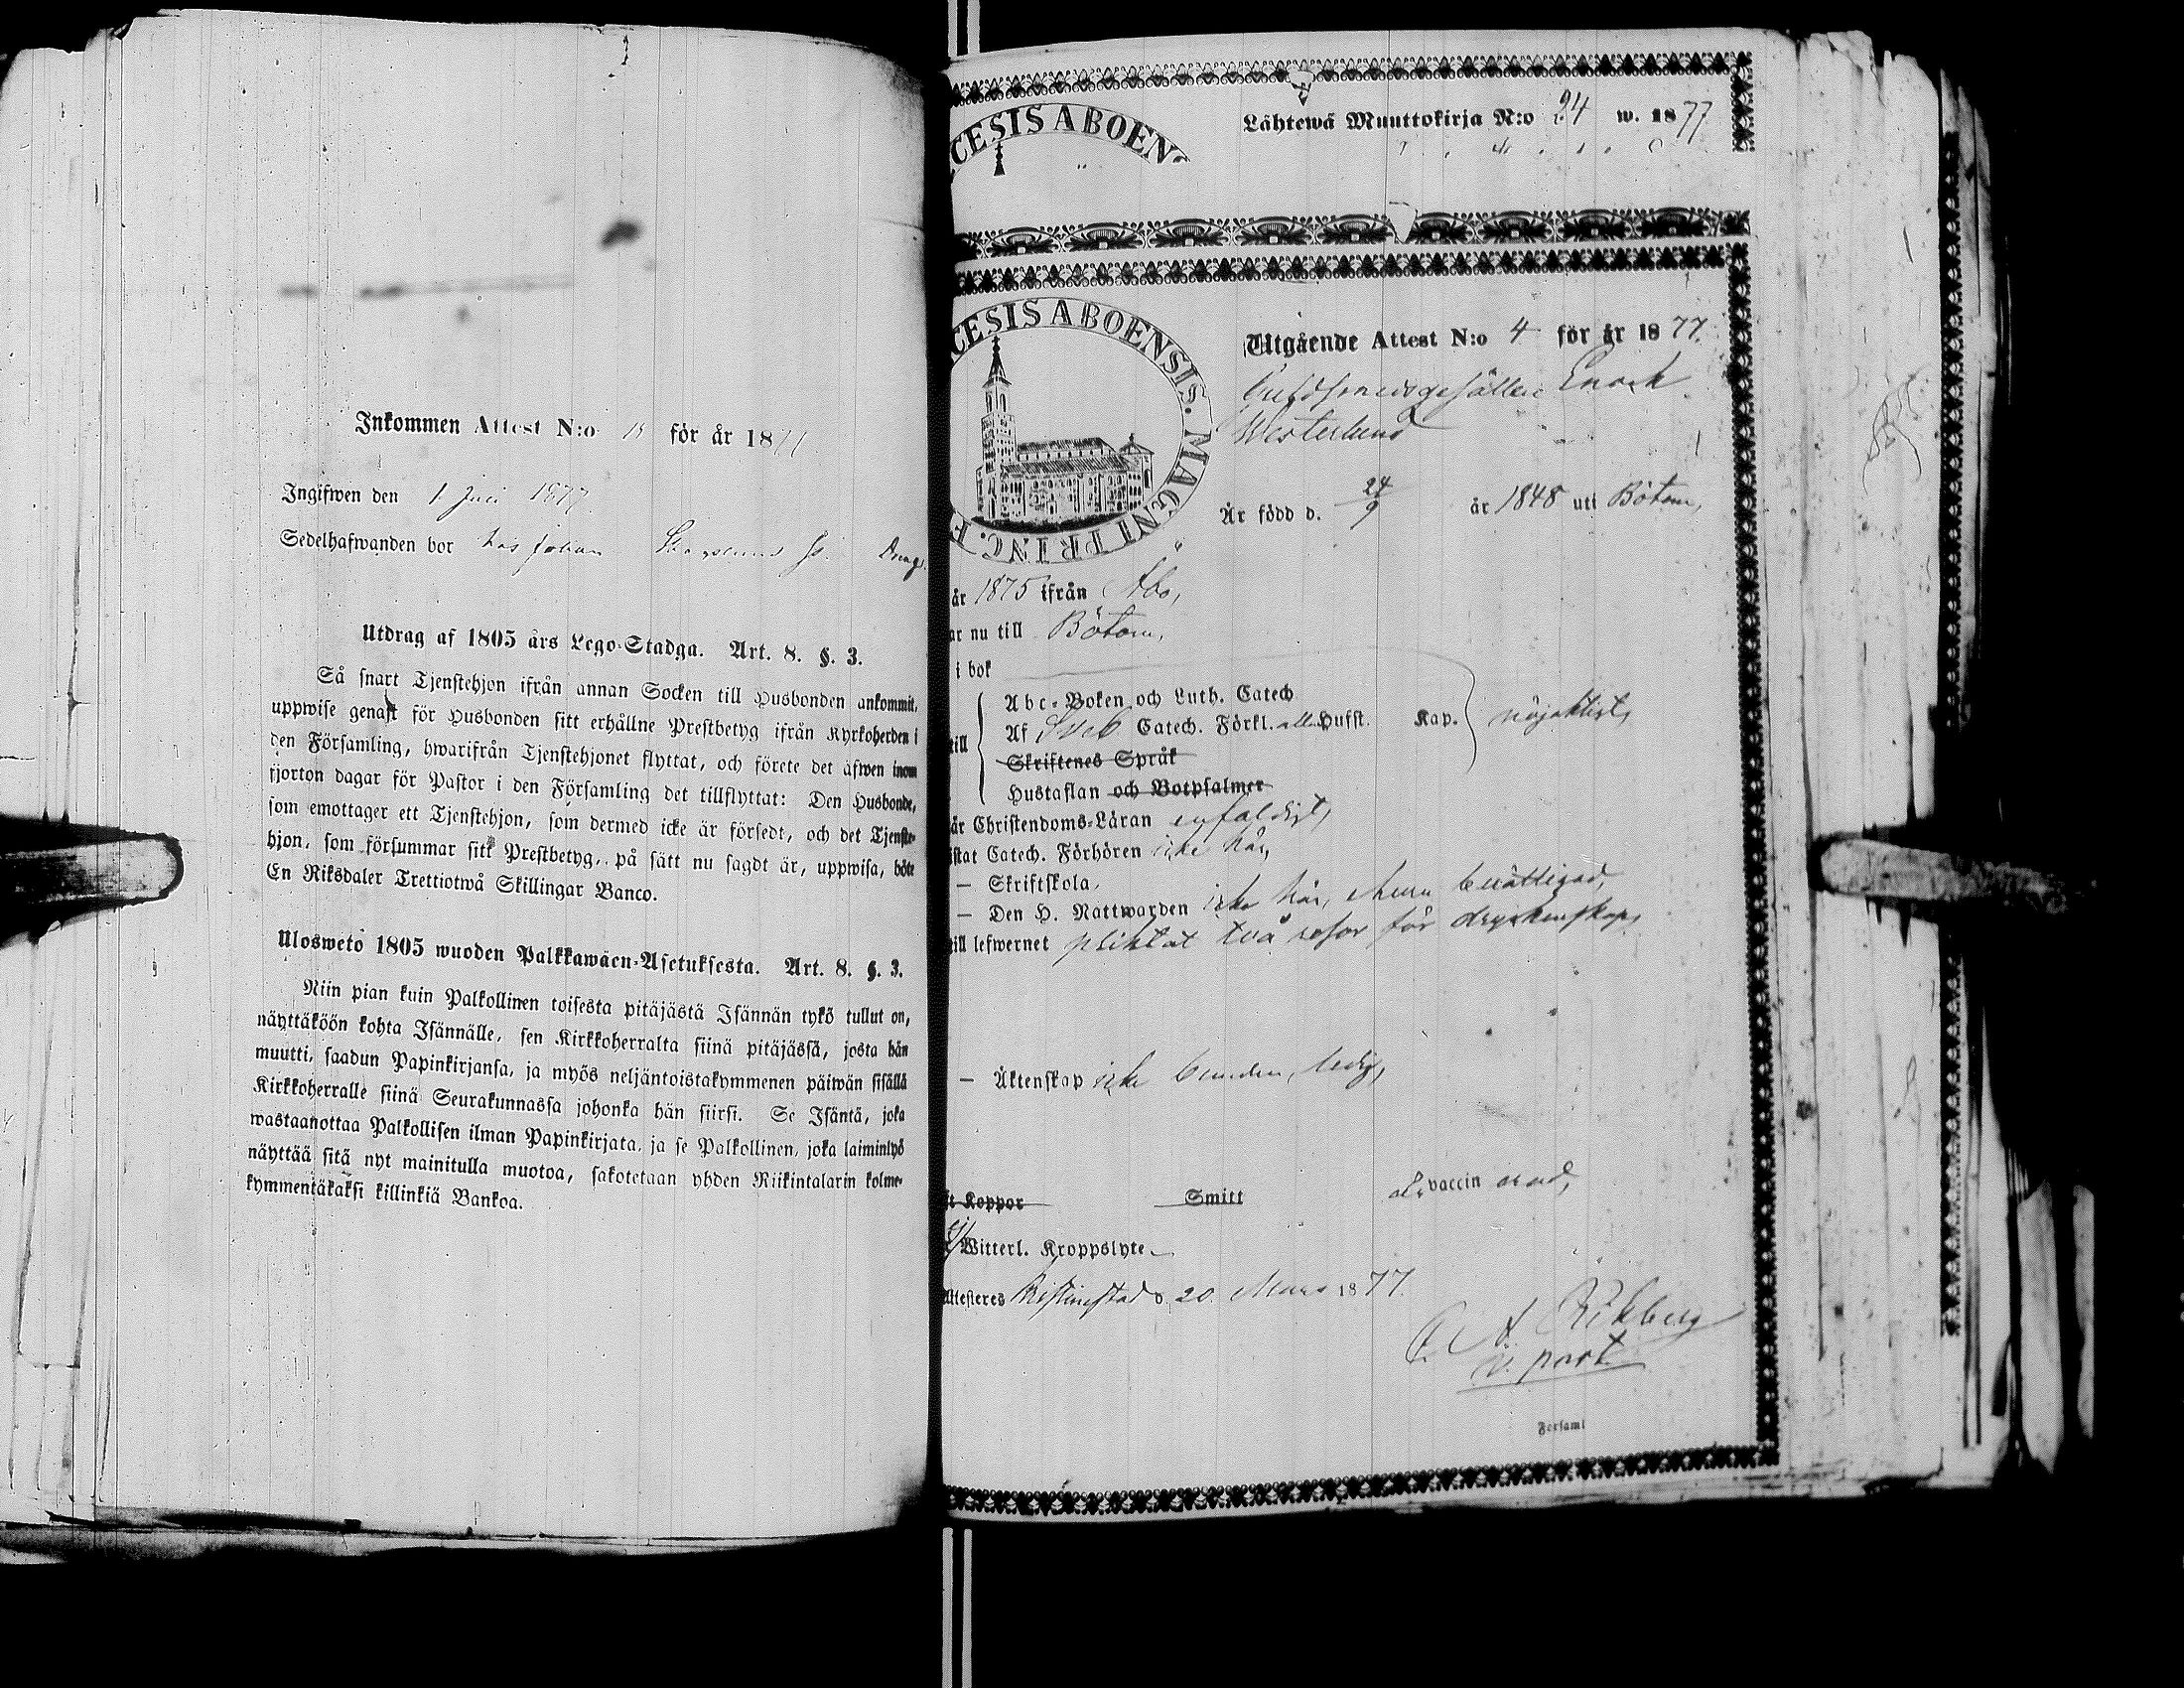 Inkommen Attest N:o 18 för år 1877
Ingifwen den 1 Juli 1877.
Sedelhafwanden bor hos Johan
Utdrag af 1805 års Lego-Stadga. Art. 8. §. 3.
Så snart Tjenstehjon ifrån annan Socken till Husbonden ankommit,
uppwise genast för Husbonden sitt erhållne Prestbetyg ifrån Kyrkoherden i
den Församling, hwarifrån Tjenstehjonet flyttat, och förete det äfwen inom
fjorton dagar för Pastor i den Församling det tillflyttat: Den Husbonde,
som emottager ett Tjenstehjon, som dermed icke är försedt, och det Tjenste-
hjon, som försummar sitt Prestbetyg, på sätt nu sagdt är, uppwisa, böte
En Riksdaler Trettiotwå Skillingar Banco.
Ulosweto 1805 wuoden Palkkawäen-Asetuksesta. Art. 8. §. 3.
Niin pian kuin Palkollinen toisesta pitäjästä Isännän tykö tullut on,
näyttäköön kohta Isännälle, sen Kirkkoherralta siinä pitäjässä, josta hän
muutti, saadun Papinkirjansa, ja myös neljäntoistakymmenen päiwän sisällä
Kirkkoherralle siinä Seurakunnassa johonka hän siirsi. Se Isäntä, joka
wastaanottaa Palkollisen ilman Papinkirjata, ja se Palkollinen, joka laiminlyö
näyttää sitä nyt mainitulla muotoa, sakotetaan yhden Riikintalarin kolme-
kymmentäkaksi killinkiä Bankoa.
CESIS ABOEN
Lähtewä Muuttokirja N:o 24 w. 1877
CESIS ABOENSIS. MAGNI PRINC. F
Utgående Attest N:o 4 för år 1877.
Guldsmedsgesällen Enock
Westerlund
Är född d. 24/9 år 1848 uti Bötom,
år 1875 ifrån Åbo,
ar nu till Bötom,
i bok
Abc-Boken och Luth. Catech
till Af Sveb Catech. Förkl. alla Hufst. Kap. nöjaktigt,
Skriftenes Språk
Hustaflan och Botpsalmer
är Christendoms-Läran enfaldigt,
istat Catech. Förhören icke här,
— Skriftskola,
— Den H. Nattwarden icke här, men berättigad,
till lefwernet pliktat två resor för dryckenskap,
— Äktenskap icke bunden, ledig,
t Koppor Smitt är vaccinerad,
ej Witterl. Kroppslyte
Attesteres Kristinestad d. 20 Mars 1877.
v. past.
Forsaml